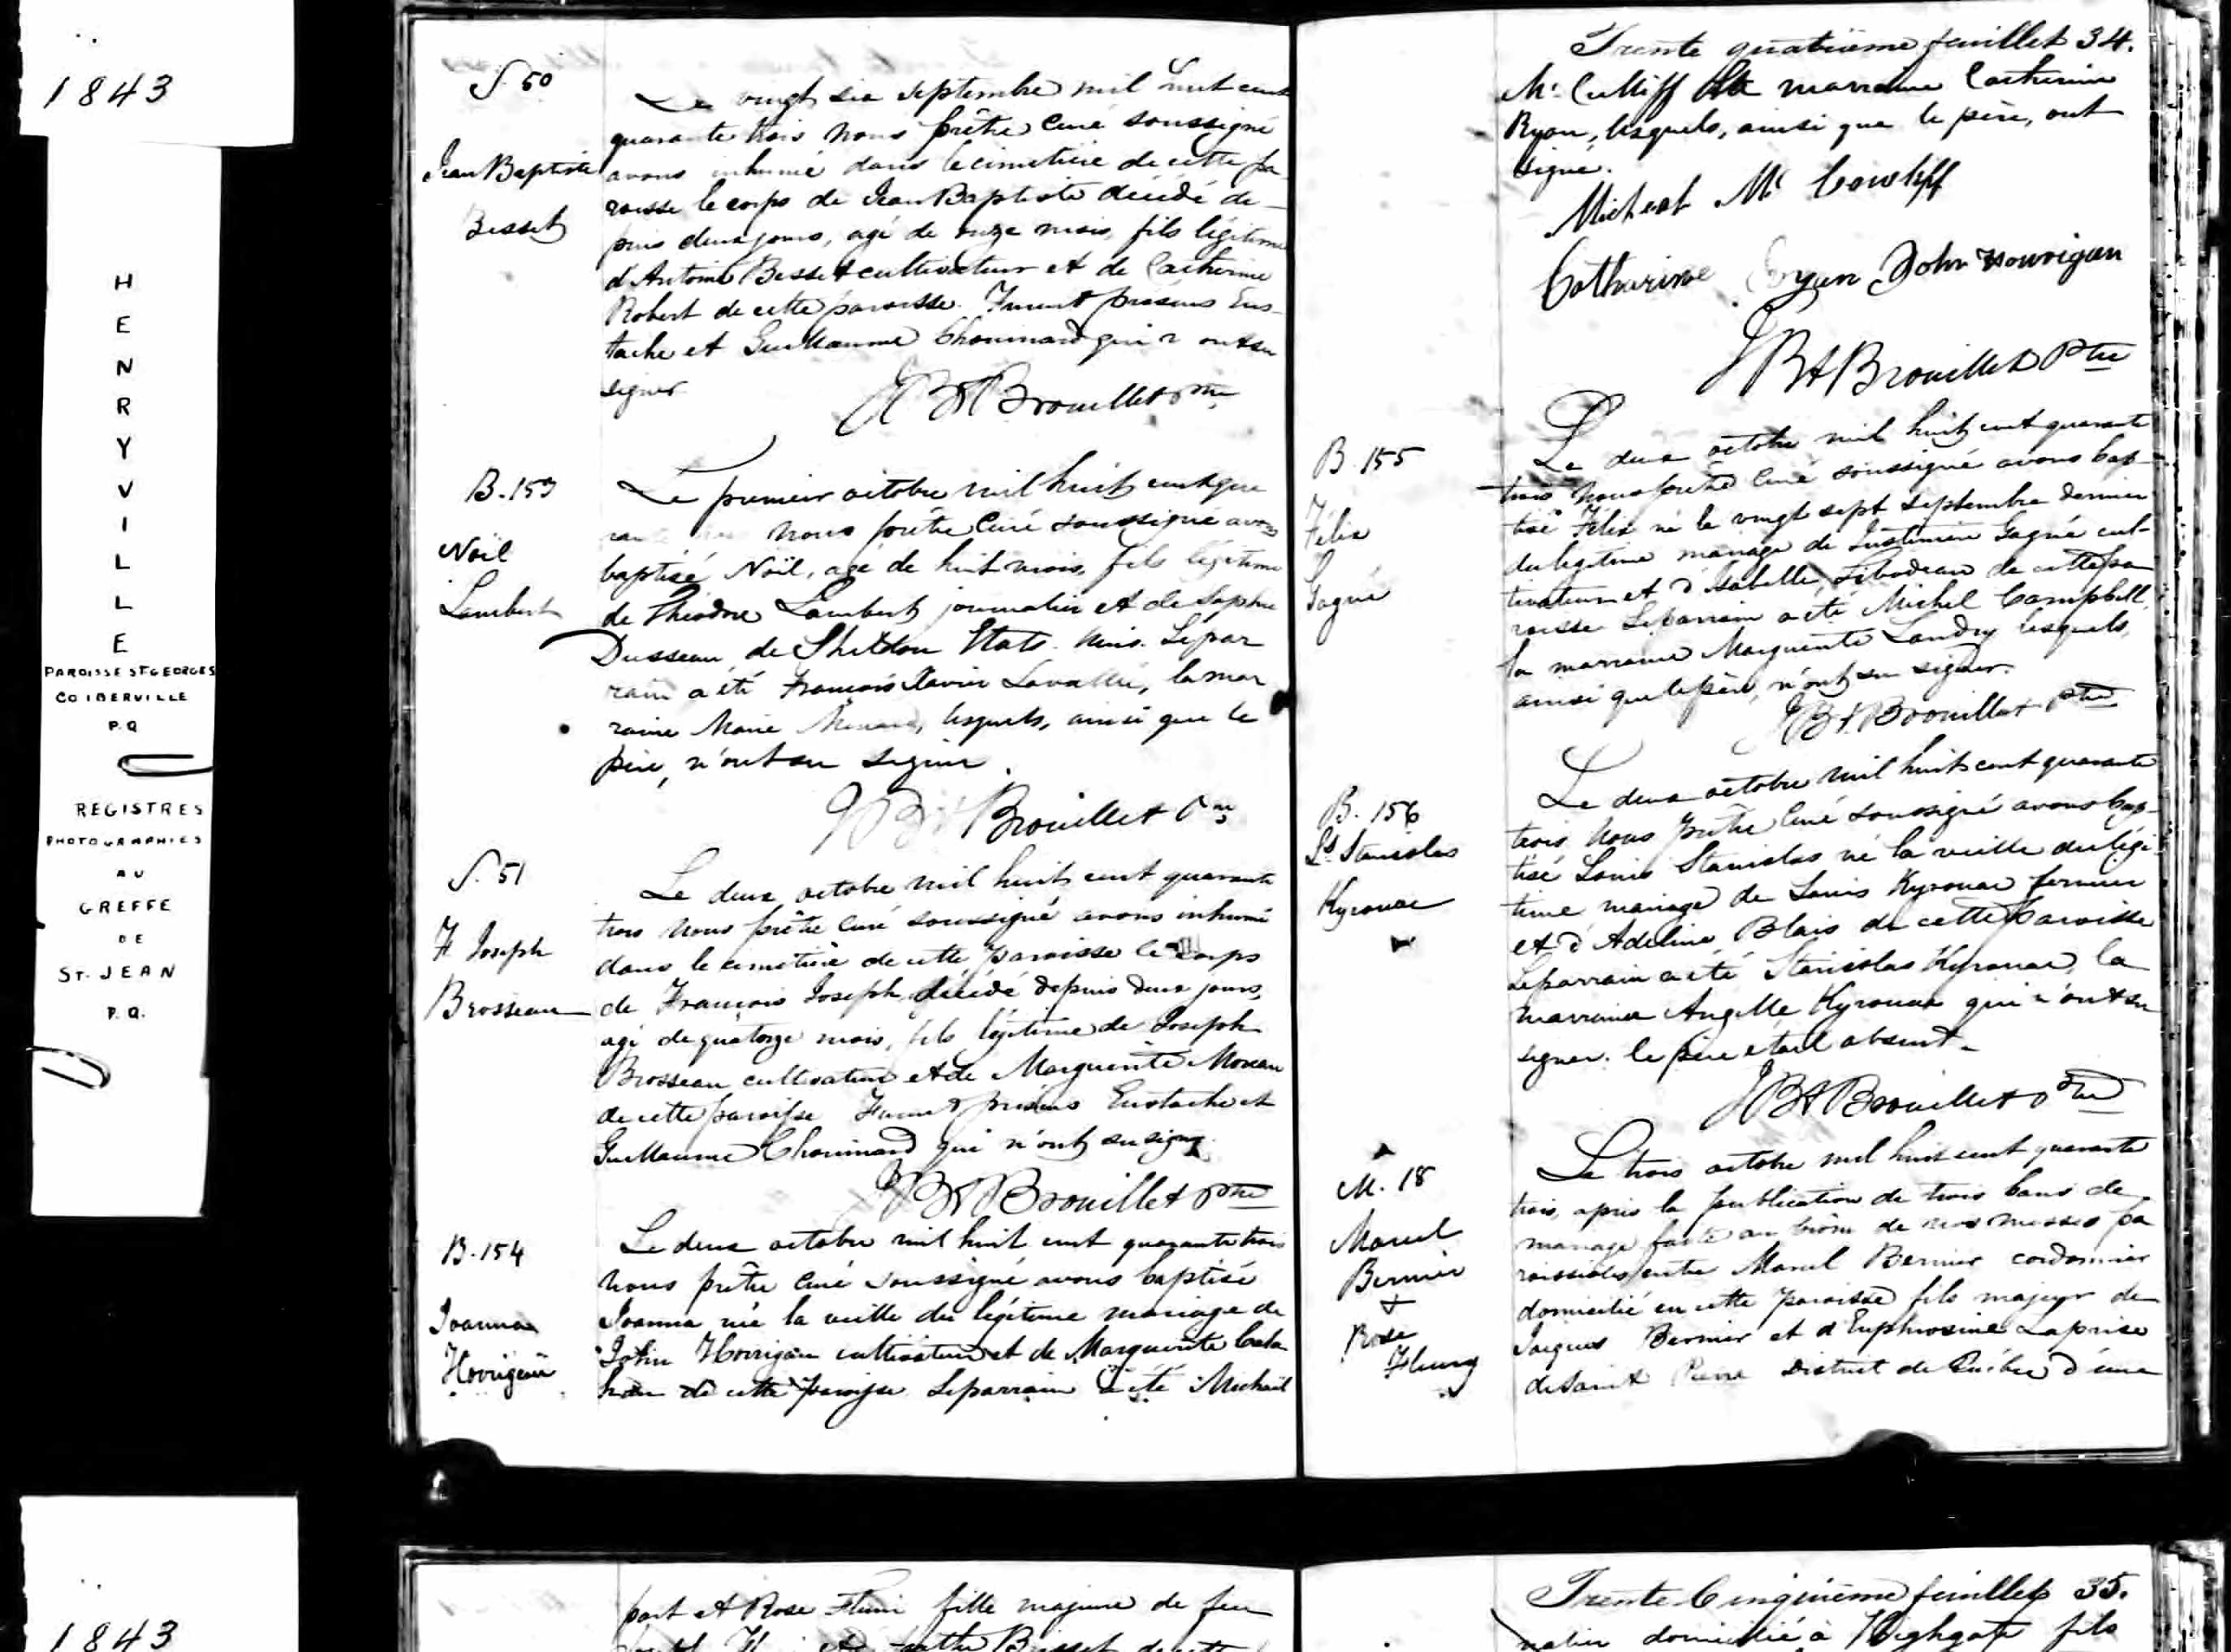 1843
HENRYVILLE
PAROISSE ST GEORGES
CO IBERVILLE
P.Q
REGISTRES
PHOTOGRAPHIES
AU
GREFFE
DE
ST. JEAN
P.Q.
1843
S. 50
Jean Baptiste
Besset
Le vingt six septembre mil huit cent
quarante trois nous prêtre Curé soussigné
avons inhumé dans le cimetière de cette pa
roisse le corps de Jean Baptiste décédé de-
puis deux jours, agé de onze mois, fils légitime
d'Antoine Besset cultivateur et de Catherine
Robert de cette paroisse. Furent présens Eus-
tache et Guillaume Chouinard qui n'ont su
signer
JBA Brouillet ptre
B. 153
Noël
Lambert
Le premier octobre mil huit cent qua
rante nous prêtre Curé soussigné avons
baptisé Noël, agé de huit mois, fils légitime
de Théodore Lambert journalier et de Sophie
Dusseau, de Sheldon Etats-Unis. Le par
rain a été François Xavier Lavallée, la mar
raine Marie Menard, lesquels, ainsi que le
père, n'ont su signer.
JBA Brouillet Ptre
S. 51
F. Joseph
Brosseau
Le deux octobre mil huit cent quarante
trois nous prêtre Curé soussigné avons inhumé
dans le cimetière de cette paroisse le corps
de François Joseph, décédé depuis deux jours,
agé de quatorze mois, fils légitime de Joseph
Brosseau cultivateur et de Marguerite Moreau
de cette paroisse Furent présens Eustache et
Guillaume Chouinard qui n'ont su signer.
JBA Brouillet Ptre
B. 154
Joanna
Horrigan
Le deux octobre mil huit cent quarante trois
nous prêtre Curé soussigné avons baptisé
Joanna née la veille du légitime mariage de
John Horrigan cultivateur et de Marguerite Cala
han de cette paroisse Le parrain a été Michael
Trente quatrième feuillet 34.
Mc Culliff la marraine Catherine
Ryan, lesquels, ainsi que le père, ont
signé.
Micheal Mc Cowliff
Catharine Ryan John Hourigan
JBA Brouillet Ptre
B. 155
Félix
Gagné
Le deux octobre mil huit cent quarante
trois nous prêtre Curé soussigné avons bap-
tisé Félix né le vingt sept septembre dernier
du légitime mariage de Justinien Gagné cul-
tivateur et d'Isabelle Thibodeau de cette pa
roisse Le parrain a été Michel Campbell,
la marraine Marguerite Landry lesquels,
ainsi que le père, n'ont su signer.
JBA Brouillet Ptre
B. 156
Ls Stanislas
Kyrouac
Le deux octobre mil huit cent quarante
trois nous prêtre Curé soussigné avons bap-
tisé Louis Stanislas né la veille du légi-
time mariage de Louis Kyrouac fermier
et d'Adeline Blais de cette paroisse
Le parrain a été Stanislas Kyrouac, la
marraine Angelle Kyrouac qui n'ont su
signer. le père etait absent.
JBA Brouillet Ptre
M. 18
Marcel
Bernier
+
Rose
Fleury
Le trois octobre mil huit cent quarante
trois, après la publication de trois bans de
mariage faite au prône de nos messes pa
roissiales entre Marcel Bernier cordonnier
domicilié en cette paroisse fils majeur de
Jacques Bernier et d'Euphrosine Laprise
de Saint Pierre District de Québec d'une
part et Rose Fleuri fille majeure de feu
Brisset de cette
Trente Cinquième feuillet 35.
nalier domicilié à Highgate fils